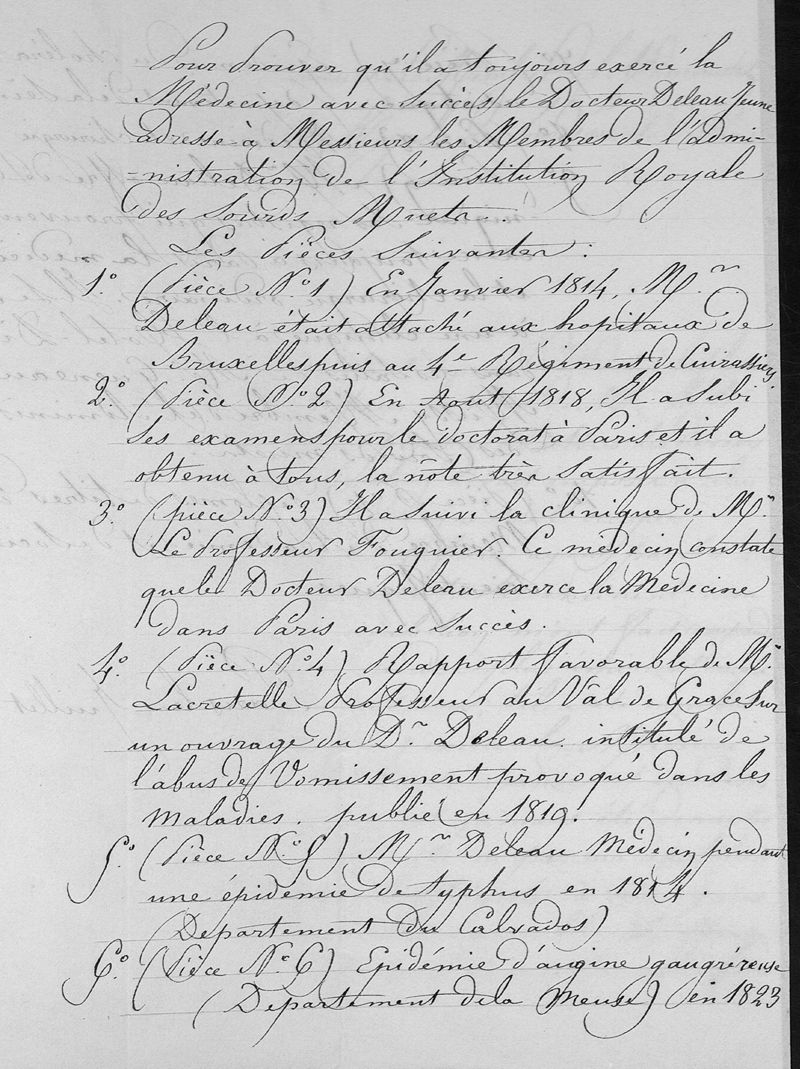 Pour Prouver qu'il a toujours exercé la
Médecine avec Succès le Docteur Deleau Jeune
adresse à Messieurs les Membres de l'admi-
-nistration de l'Institution Royale
des Sourds Muets.
Les Pièces Suivantes :
1.° (Pièce N.° 1) En Janvier 1814, M.r
Deleau était attaché aux hopitaux de
Bruxelles puis au 4.e Régiment de Cuirassiers
2.° (Pièce N.° 2) En Aout 1818, Il a Subi
Ses examens pour le doctorat à Paris et il a
obtenu à tous, la note très Satisfait.
3.° (pièce N.° 3) Il a Suivi la clinique de M.r
Le Professeur Fouquier. Ce médecin constate
que le Docteur Deleau exerce la Médecine
dans Paris avec Succès.
4.° (Pièce N.° 4) Rapport favorable de M.r
Lacretelle Professeur au Val de Grace Sur
un ouvrage du D.r Deleau. intitulé de
l'abus de Vomissement provoqué dans les
Maladies. publié en 1819.
5.° (Pièce N.° 5) M.r Deleau Médecin pendant
une épidemie de typhus en 1814.
(Departement du Calvados)
6.° (Pièce N.° 6) Epidémie d'angine gangréneuse
(Departement de la Meuse) en 1823